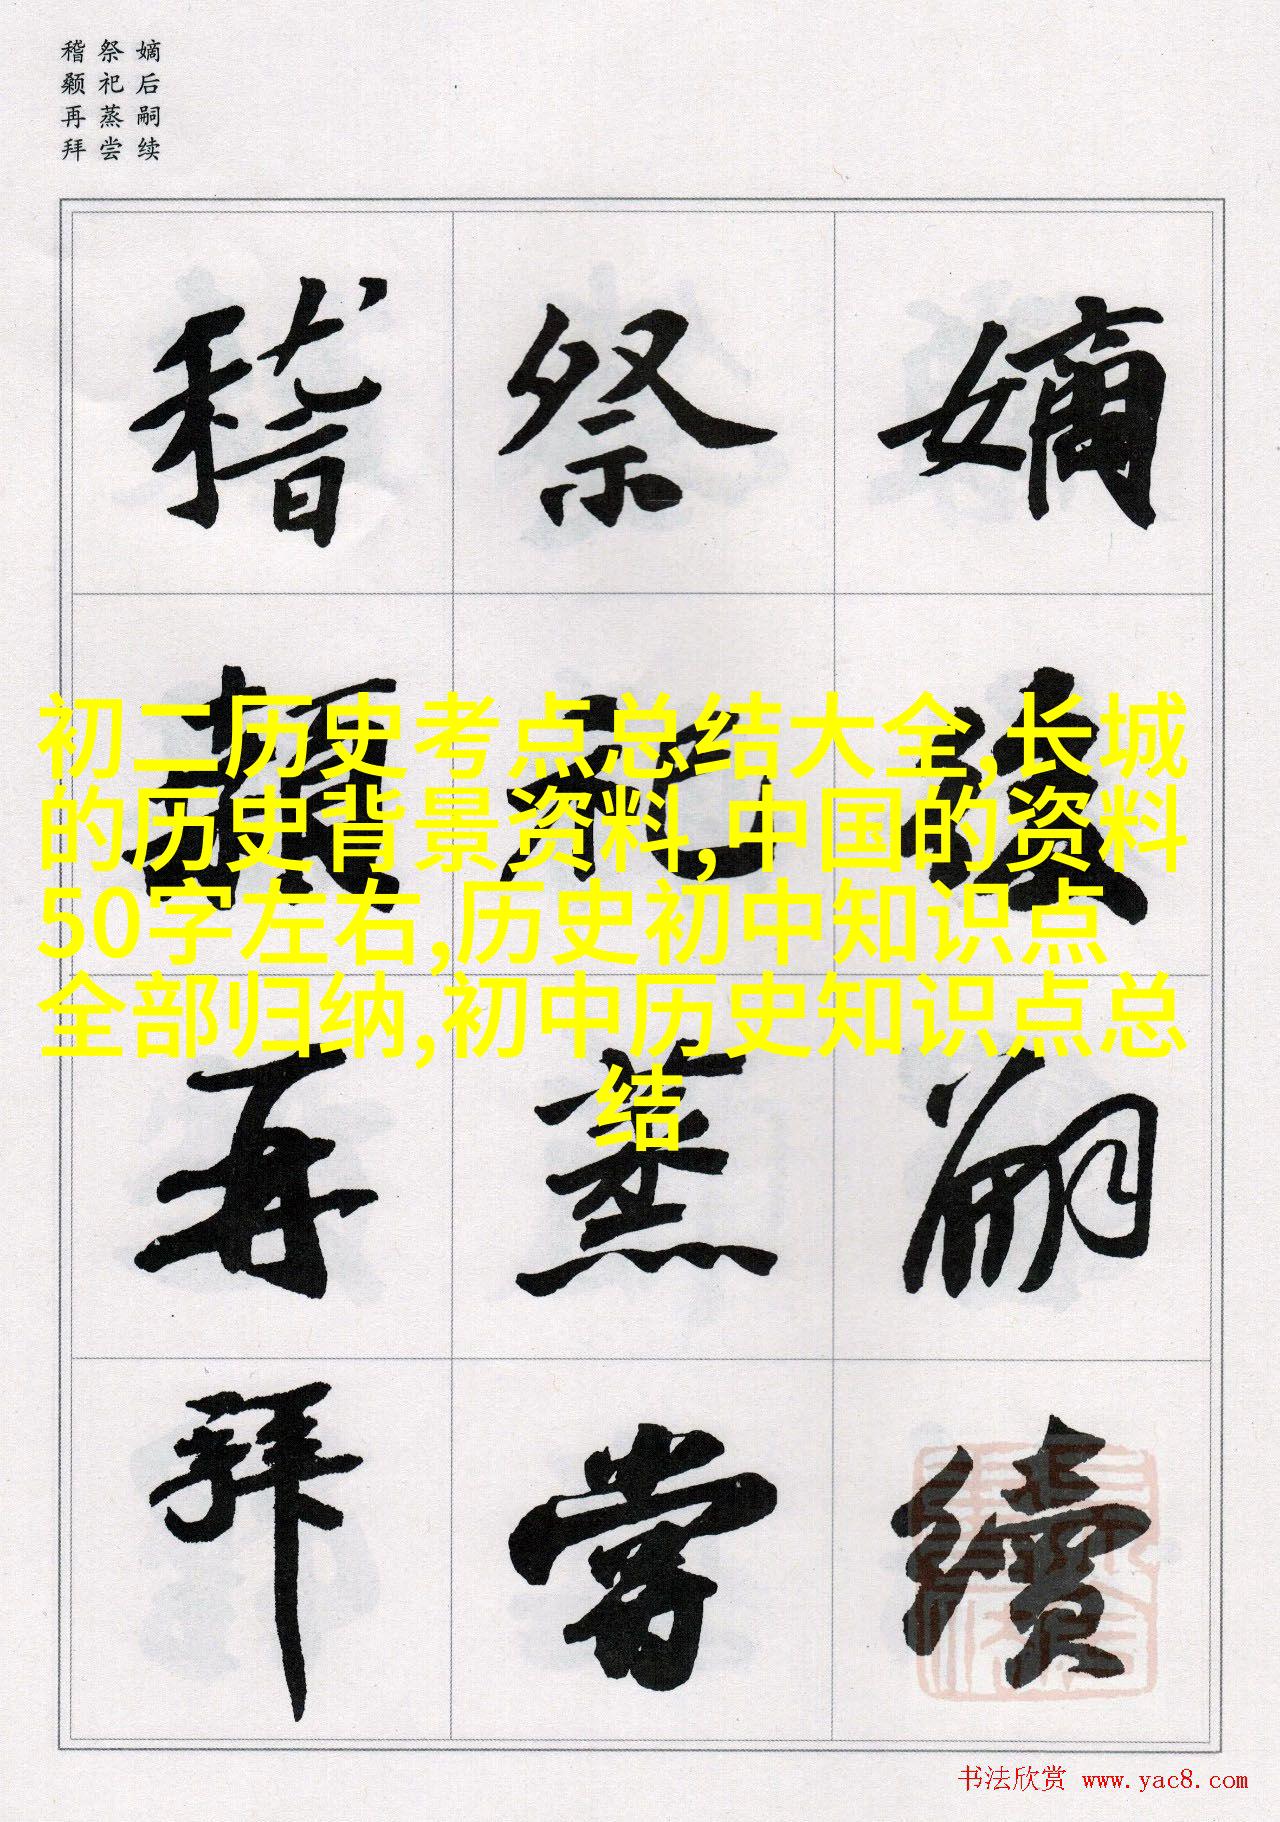 嫡后嗣续
祭祀蒸尝
稽颡再拜
嫡后嗣續
祭祀蒸嘗
稽顙再拜
初二历史考点总结大全,长城
的历史背景资料,中国的资料
50字左右,历史初中知识点
全部归纳,初中历史知识点总
结
书法欣赏 www.yac8.com